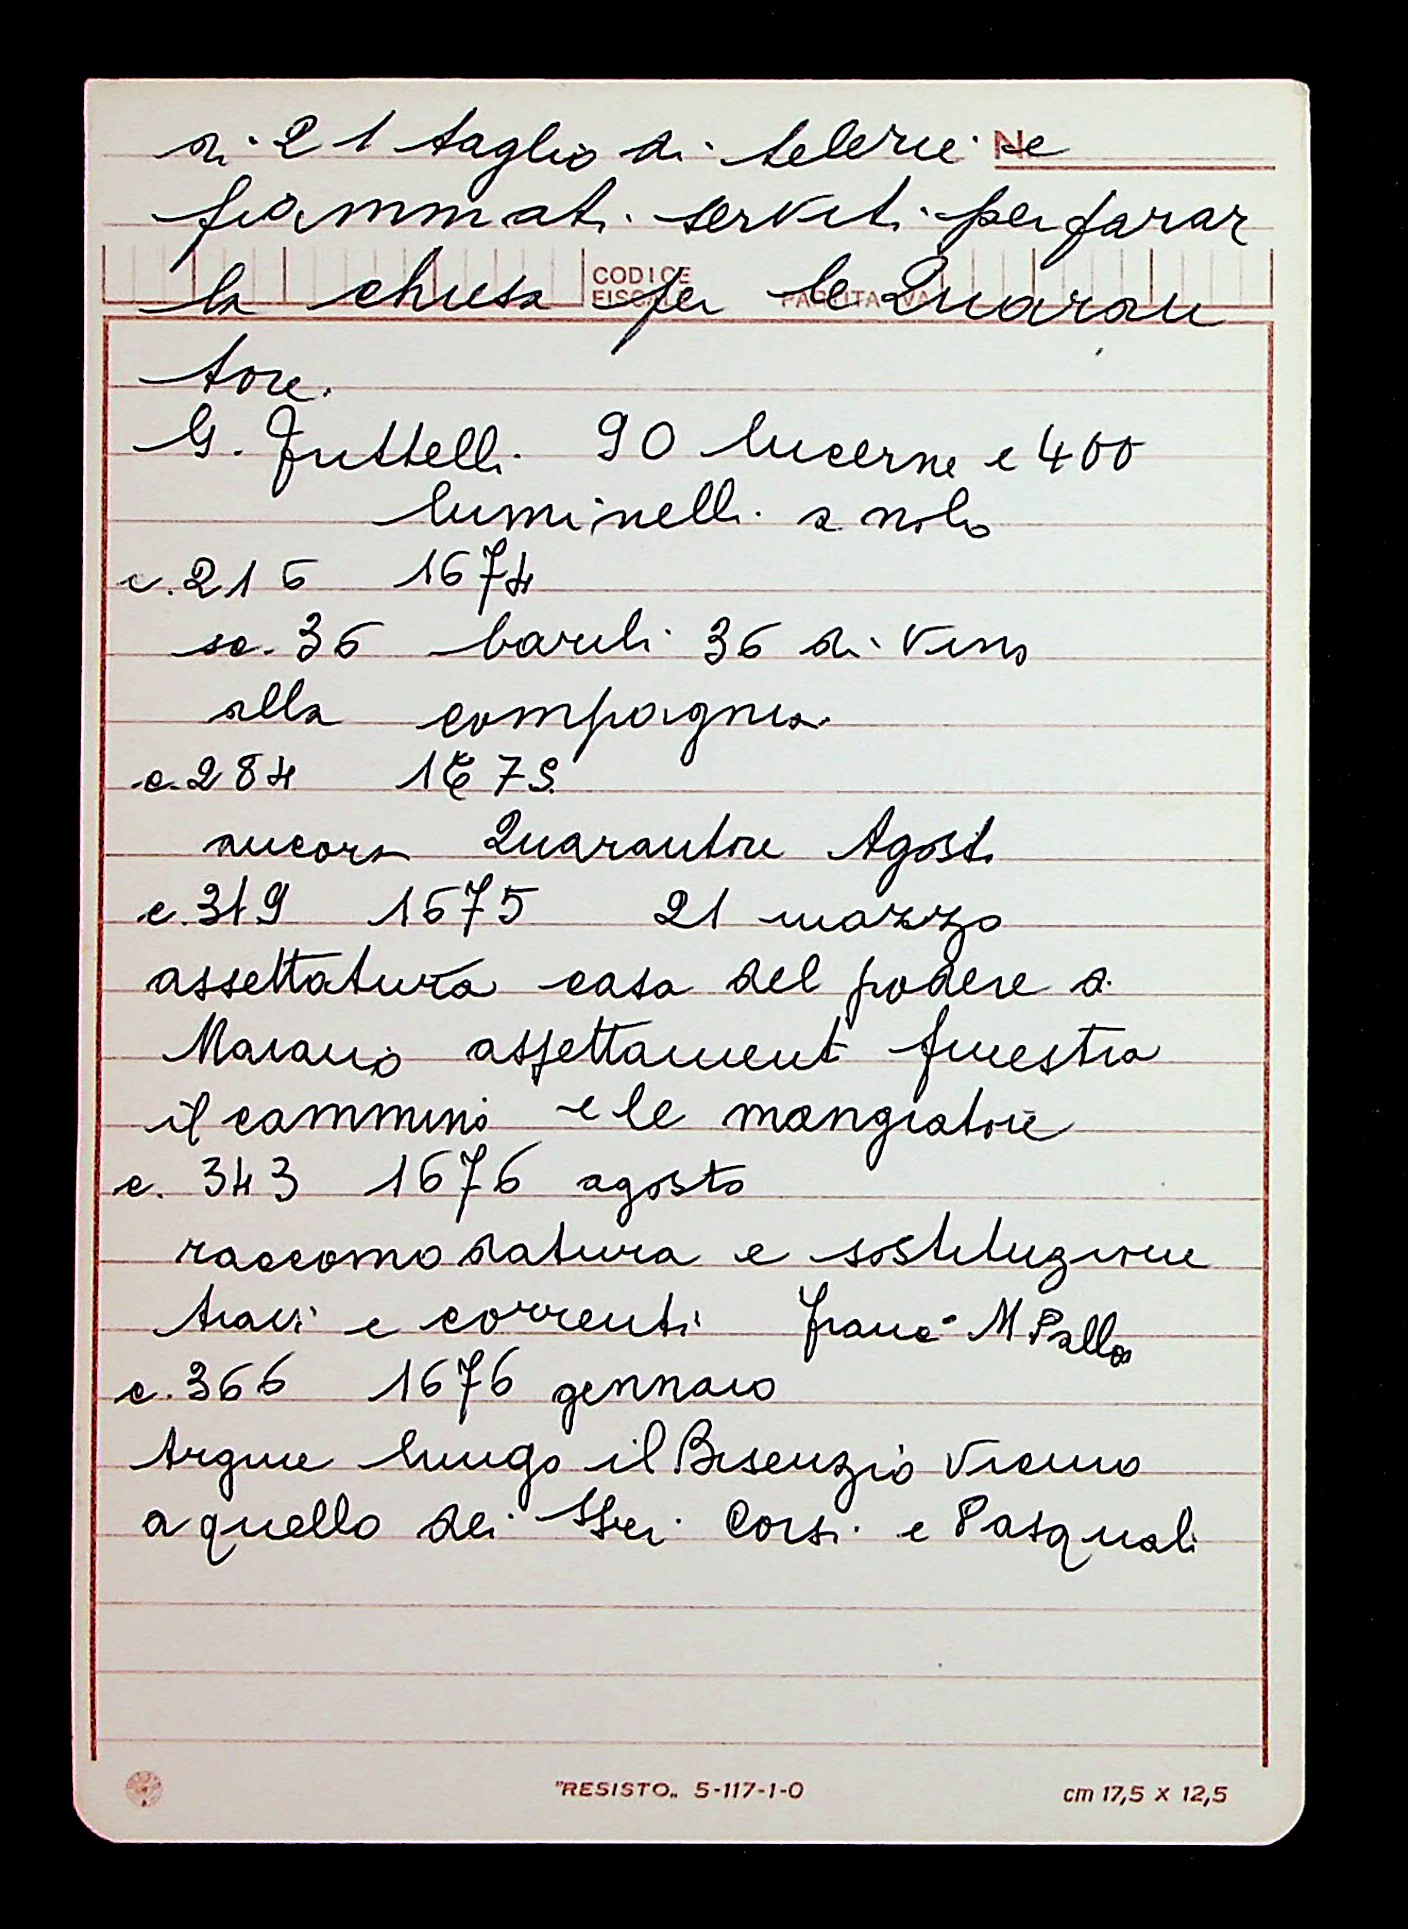 di 21 taglio di telerie se
fiammati serviti per parar
la chiesa per le Quaran
tore.
G. 90 lucerne e 400
luminelli a nolo
c. 216 1674
sc. 36 barili 36 di vino
alla compagnia
c. 284 1675
ancora Quarantore Agosto
c. 319 1675 21 marzo
assettatura casa del podere a
Marano assettament finestra
il cammino e le mangiatoie
c. 343 1676 agosto
raccomodatura e sostituzione
travi e correnti Franc° M Pallo
c. 366 1676 gennaio
Argine lungo il Bisenzio vicino
a quello dei SSri Corsi e Pasquali
No
CODICE
FISCALE
"RESISTO„ 5-117-1-0
cm 17,5 x 12,5